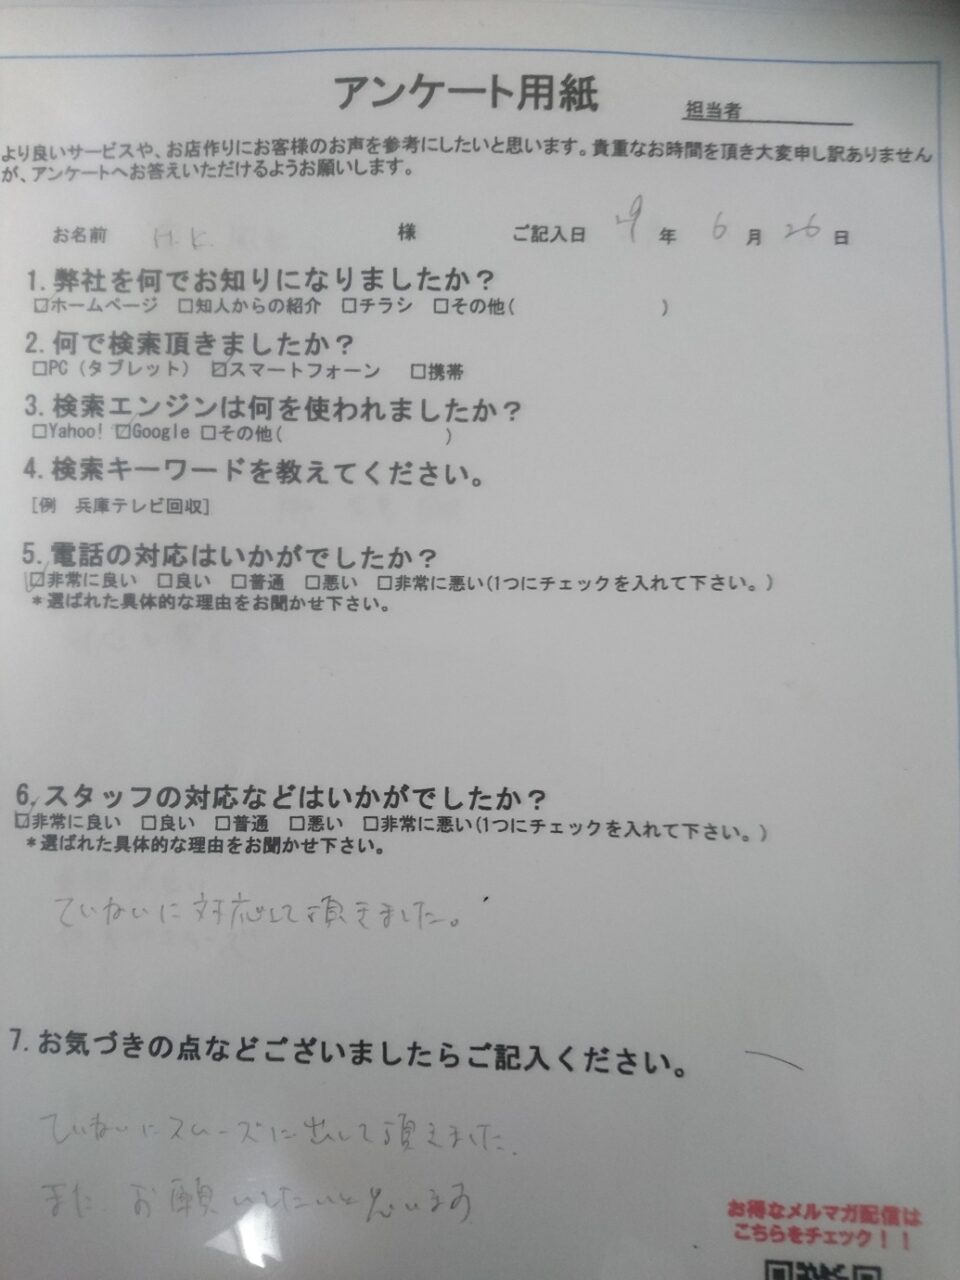 アンケート用紙
担当者
より良いサービスや、お店作りにお客様のお声を参考にしたいと思います。貴重なお時間を頂き大変申し訳ありません
が、アンケートへお答えいただけるようお願いします。
お名前 H.K. 様 ご記入日 29 年 6 月 26 日
1. 弊社を何でお知りになりましたか？
☑ホームページ □知人からの紹介 □チラシ □その他( )
2. 何で検索頂きましたか？
□PC（タブレット） ☑スマートフォーン □携帯
3. 検索エンジンは何を使われましたか？
□Yahoo! ☑Google □その他( )
4. 検索キーワードを教えてください。
[例 兵庫テレビ回収]
5. 電話の対応はいかがでしたか？
☑非常に良い □良い □普通 □悪い □非常に悪い(1つにチェックを入れて下さい。)
＊選ばれた具体的な理由をお聞かせ下さい。
6. スタッフの対応などはいかがでしたか？
☑非常に良い □良い □普通 □悪い □非常に悪い(1つにチェックを入れて下さい。)
＊選ばれた具体的な理由をお聞かせ下さい。
ていねいに対応して頂きました。
7. お気づきの点などございましたらご記入ください。
ていねいにスムーズに出して頂きました.
また、お願いしたいと思います
お得なメルマガ配信は
こちらをチェック！！